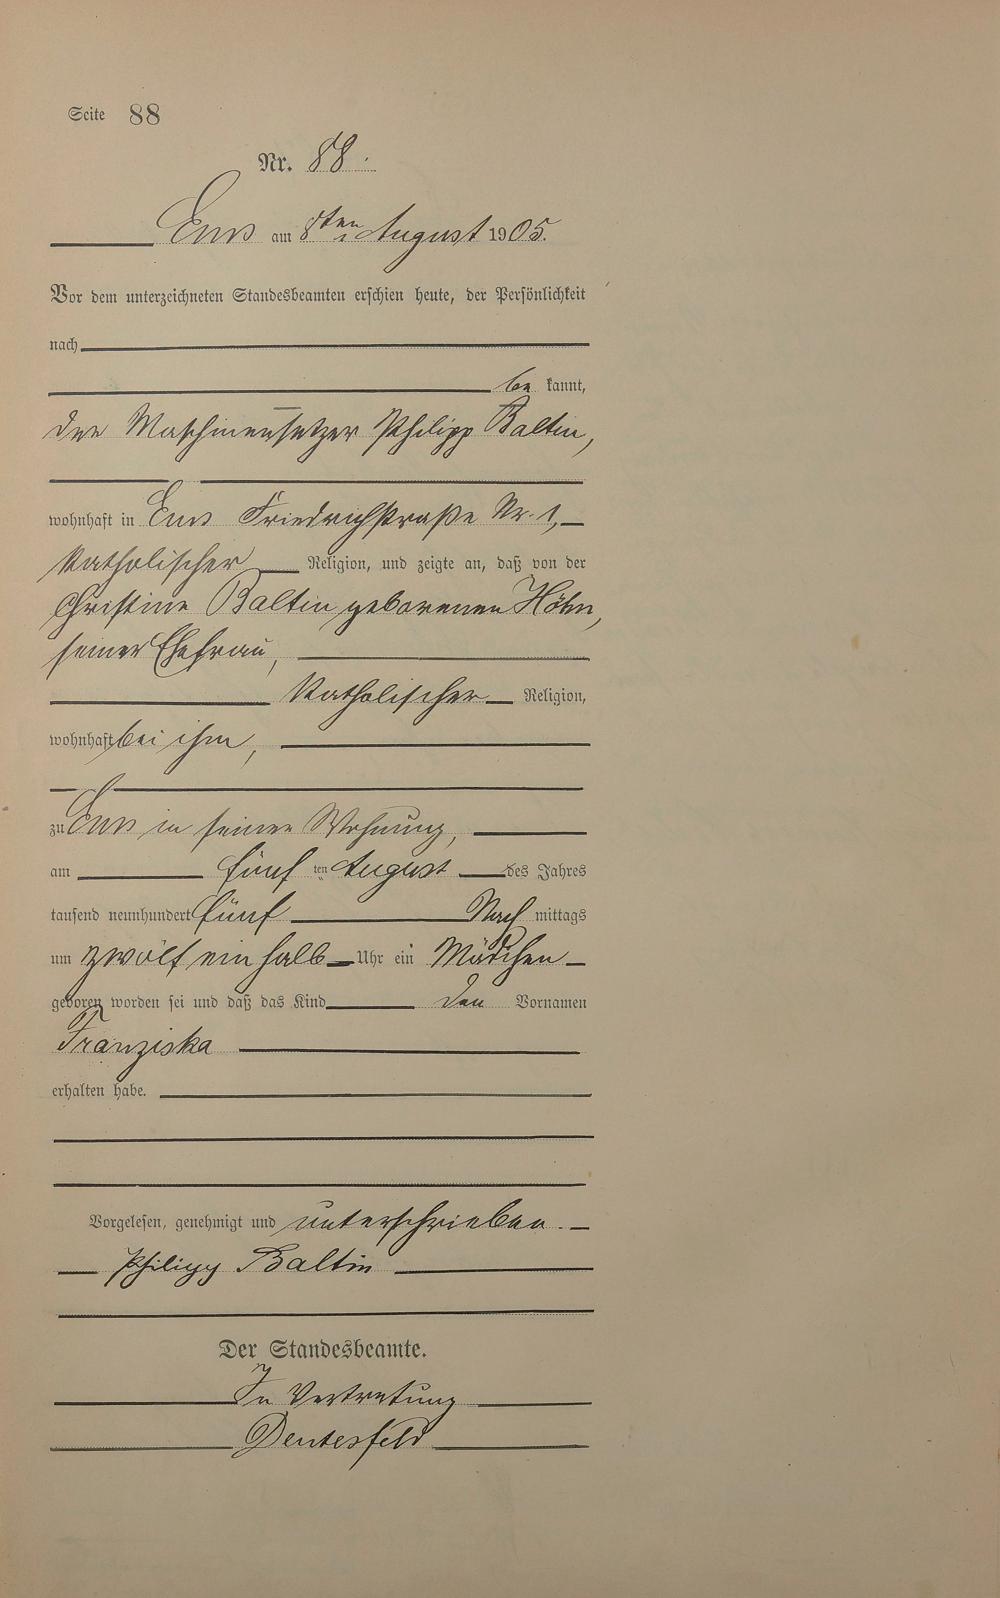 Seite 88
Nr. 88.
Ems am 8ten August 1905.
Vor dem unterzeichneten Standesbeamten erschien heute, der Persönlichkeit
nach
be kannt,
der Maschinensetzer Philipp Baltin,
wohnhaft in Ems Friedrichstraße Nr. 1,
katholischer Religion, und zeigte an, daß von der
Christine Baltin geborenen Höhn,
seiner Ehefrau,
katholischer Religion,
wohnhaft bei ihm,
zu Ems in seiner Wohnung,
am fünf ten August des Jahres
tausend neunhundert fünf Nach mittags
um zwölf ein halb Uhr ein Mädchen
geboren worden sei und daß das Kind den Vornamen
Franziska
erhalten habe.
Vorgelesen, genehmigt und unterschrieben.
Philipp Baltin
Der Standesbeamte.
In Vertretung